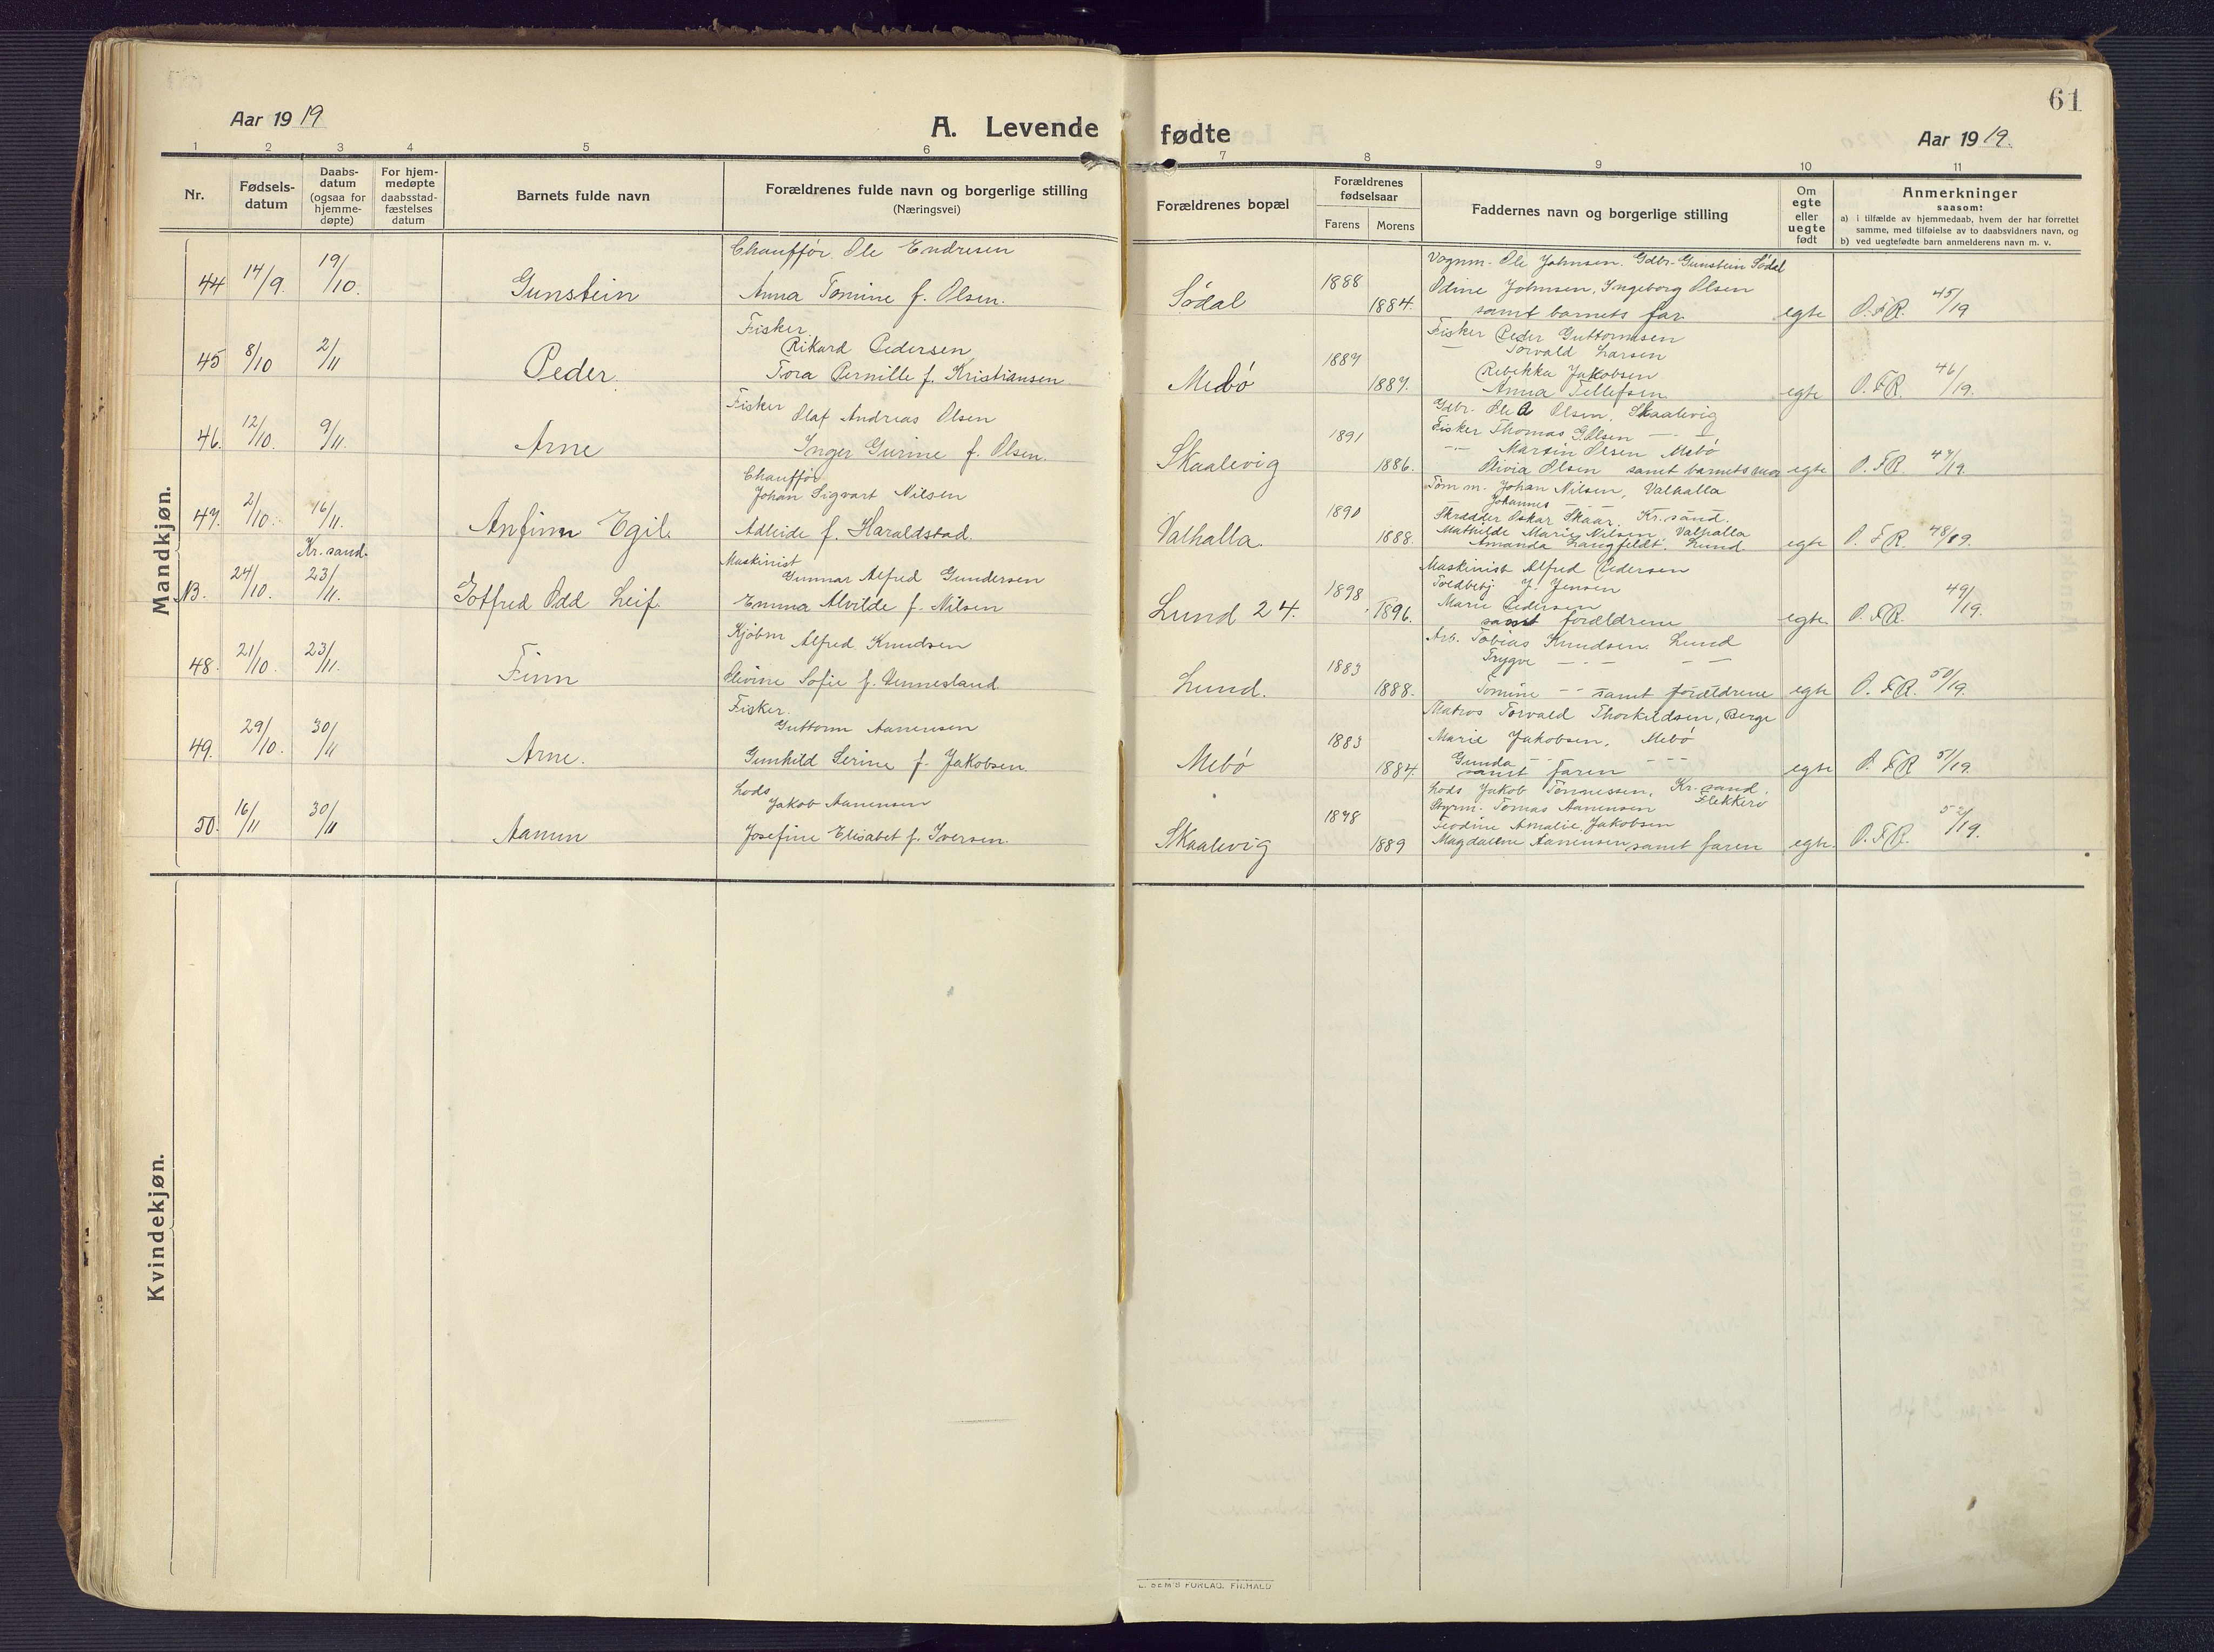 61
Aar 1919
A. Levende fødte
Aar 1919.
1 2 3 4 5 6 7 8 9 10 11
Nr.
Fødsels-
datum
Daabs-
datum
(ogsaa for
hjemme-
døpte)
For hjem-
medøpte
daabsstad-
fæstelses
datum
Barnets fulde navn
Forældrenes fulde navn og borgerlige stilling
(Næringsvei)
Forældrenes bopæl
Forældrenes
fødselsaar
Farens Morens
Faddernes navn og borgerlige stilling
Om
egte
eller
uegte
født
Anmerkninger
saasom:
a) i tilfælde av hjemmedaab, hvem der har forrettet
samme, med tilføielse av to daabsvidners navn, og
b) ved uegtefødte barn anmelderens navn m. v.
Mandkjøn.
44 14/9. 19/10. Gunstein
Chauffør. Ole Endresen
Anna Tomine f. Olsen.
Sødal 1888 1884.
Vognm. Ole Johnsen. Gdbr. Gunstein Sødal
Odine Johnsen, Ingeborg Olsen
samt barnets far.
egte O.F.R. 45/19
45 8/10 2/11 Peder.
Fisker
Rikard Pedersen
Tora Pernille f. Kristiansen
Mebø 1887 1887.
Fisker Peder Guttormsen
— Torvald Larsen
Rebekka Jakobsen
Anna Tellefsen
egte O.F.R. 46/19.
46. 12/10. 9/11. Arne
Fisker Olaf Andreas Olsen
Inger Gurine f. Olsen.
Skaalevig 1891 1886.
Gdbr. Ole A Olsen, Skaalevig
Fisker Thomas G. Olsen — —
— Martin Olsen Mebø
Olivia Olsen samt barnets mor
egte O.F.R. 47/19.
47. 2/10. 16/11. Anfinn Egil.
Chauffør
Johan Sigvart Nilsen
Adleide f. Haraldstad.
Valhalla. 1890 1888.
Tømm. Johan Nilsen, Valhalla
Johannes — —
Skrædder Oskar Skaar. Kr.sand.
Mathilde Marie Nilsen Valhalla
Amanda Langfeldt. Lund
egte O.F.R. 48/19.
Kr.sand.
N3. 24/10. 23/11. Gotfred Odd Leif.
Maskinist
Gunnar Alfred Gundersen
Emma Alvilde f. Nilsen
Lund 24. 1898 1896.
Maskinist Alfred Pedersen
Toldbetj. J. Jensen
Marie Pedersen
samt forældrene
egte. O.F.R. 49/19.
48. 21/10. 23/11. Finn
Kjøbm Alfred Knudsen
Elevine Sofie f. Vennesland
Lund. 1883 1888.
Arb. Tobias Knudsen. Lund
Trygve — — —
Tomine — — samt forældrene
egte O.F.R. 50/19.
49. 29/10. 30/11 Arne.
Fisker.
Guttorm Aanensen
Gunhild Serine f. Jakobsen.
Mebø 1883 1884.
Matros Torvald Thorkildsen, Berge
Marie Jakobsen, Mebø
Gunda — — —
samt faren
egte O.F.R 51/19.
50. 16/11 30/11 Aanen
Lods
Jakob Aanensen
Josefine Elisabet f. Iversen.
Skaalevig 1878 1889
Lods Jakob Tønnessen, Kr.sand.
Styrm. Tomas Aanensen Flekkerø
Teodine Amalie Jakobsen
Magdalene Aanensen samt faren
egte. O.F.R. 52/19.
Kvindekjøn.
E. SEM'S FORLAG, FR.HALD